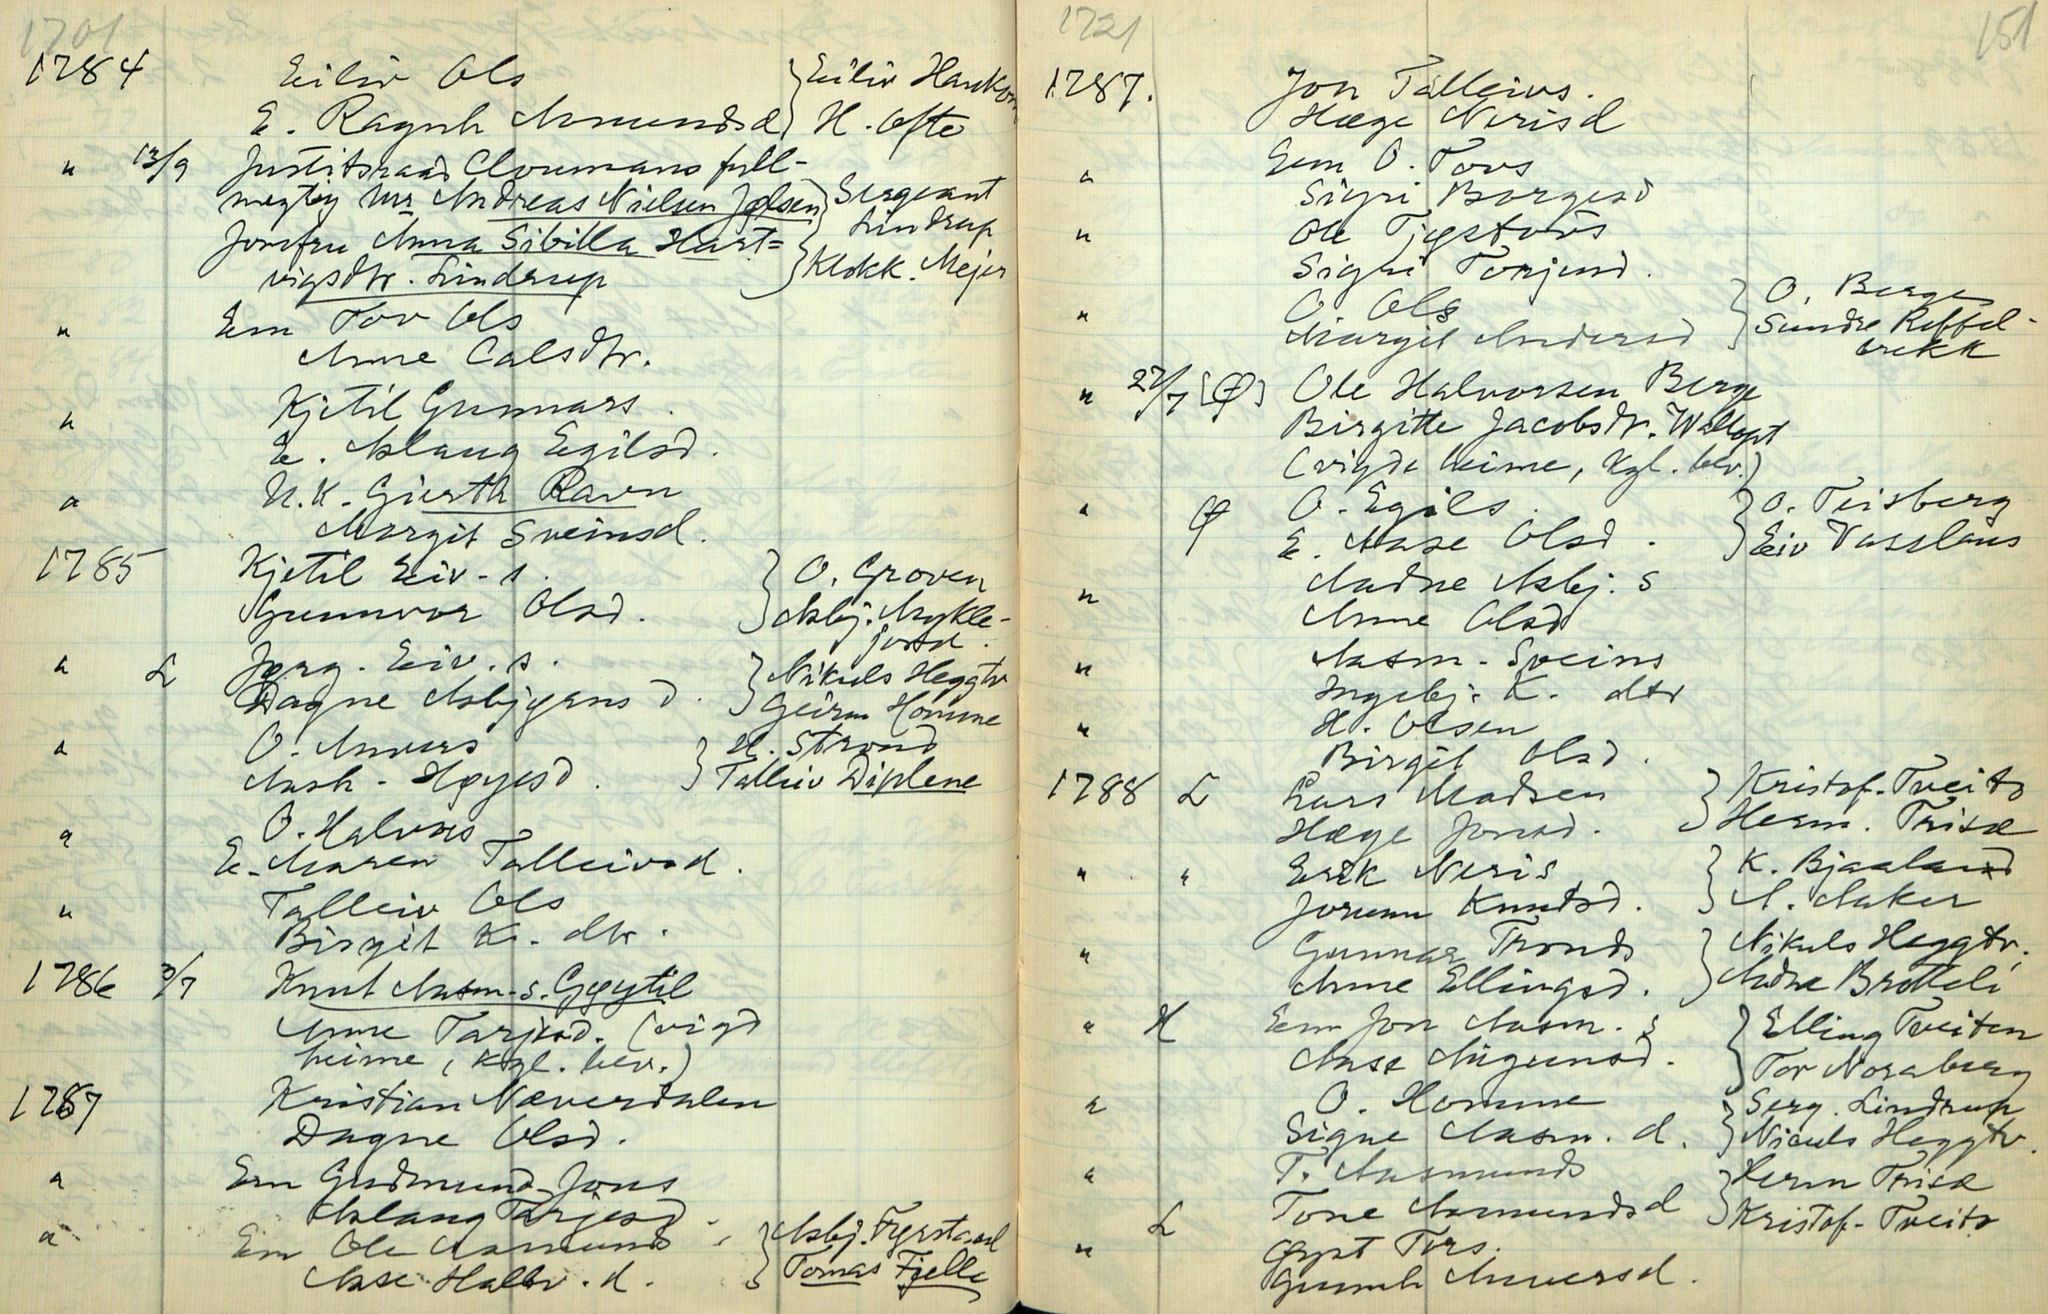 1701
1784 Eiliv Ols } Eiliv Haukom
E. Ragnh Amundsd } H. Ofte
" 13/9 Justitsraad Cloumans full-
megtig Mr Andreas Nielsen Jølsen } Sergeant
Lindrup
Jomfru Anna Sibilla Hart=
vigsdtr. Lindrup } Klokk. Mejer
" Em Tov Ols
Anne Calsdtr.
" Kjetil Gunnars.
E. Aslaug Egilsd.
" N.K. Gierth Ravn
Margit Sveinsd.
1785 Kjetil Eiv-s. } O. Groven
Gunnvor Olsd. } Asbj. Mykle-
jord.
" L Jørg. Eiv.s. } Nikuls Heggtv
Dagne Asbjørns d. } Geirm Homme
" O. Anvers } H. Strond
Aash- Høyesd. } Talleiv Diplene
" O. Halvors
E. Maren Talleivsd.
" Talleiv Ols
Birgit K. dtr.
1786 3/7 Knut Aasm-s. Gøytil
Anne Tarjesd. (vigd
heime, kgl. bev.)
1787 Kristian Næverdalen
Dagne Olsd.
" Em Gudmund Jons
Aslaug Tarjesd.
" Em Ole Aasmunds } Asbj. Tyrstaad
Aase Halv.d. } Tomas Fjelle
1721
151
1787. Jon Talleivs.
Hæge Nerisd
" Em O. Tovs
Signi Borgesd
" Ole Tjøstovs
Signi Torjusd.
" O. Ols } O. Berge
Margit Andersd } Sundre Røffel-
brekk
" 27/7 [Ø] Ole Halvorsen Berge
Birgitte Jacobsdtr. Wallopt
(vigde heime, kgl. bev.)
" Ø O. Egils. } O. Teisberg
E. Aase Olsd. } Eiv Vaaslaus
" Aadne Asbj. s
Anne Olsd
" Aasm. Sveins
Ingebj. K. dtr
" H. Olsen
Birgit Olsd.
1788 L Lars Madsen } Kristof. Tveito
Hæge Jonsd. } Herm. Trisæ
" " Erik Neris } K. Bjaaland
Jorunn Knudsd. } A. Aaker
" Gunnar Tronds } Nikuls Heggtv.
Anne Ellingsd. } Aadne Brotteli
" H Em Jon Aasm. s } Elling Tveiten
Aase Augunsd. } Tov Noraberg
" O. Homme } Serg. Lindrup
Signe Aasm. d. } Niculs Heggtv.
" T. Aasmunds } Herm Trisæ
L Tone Aamundsd } Kristof. Tveito
" Gjøst Tors.
Gunnh Anversd.